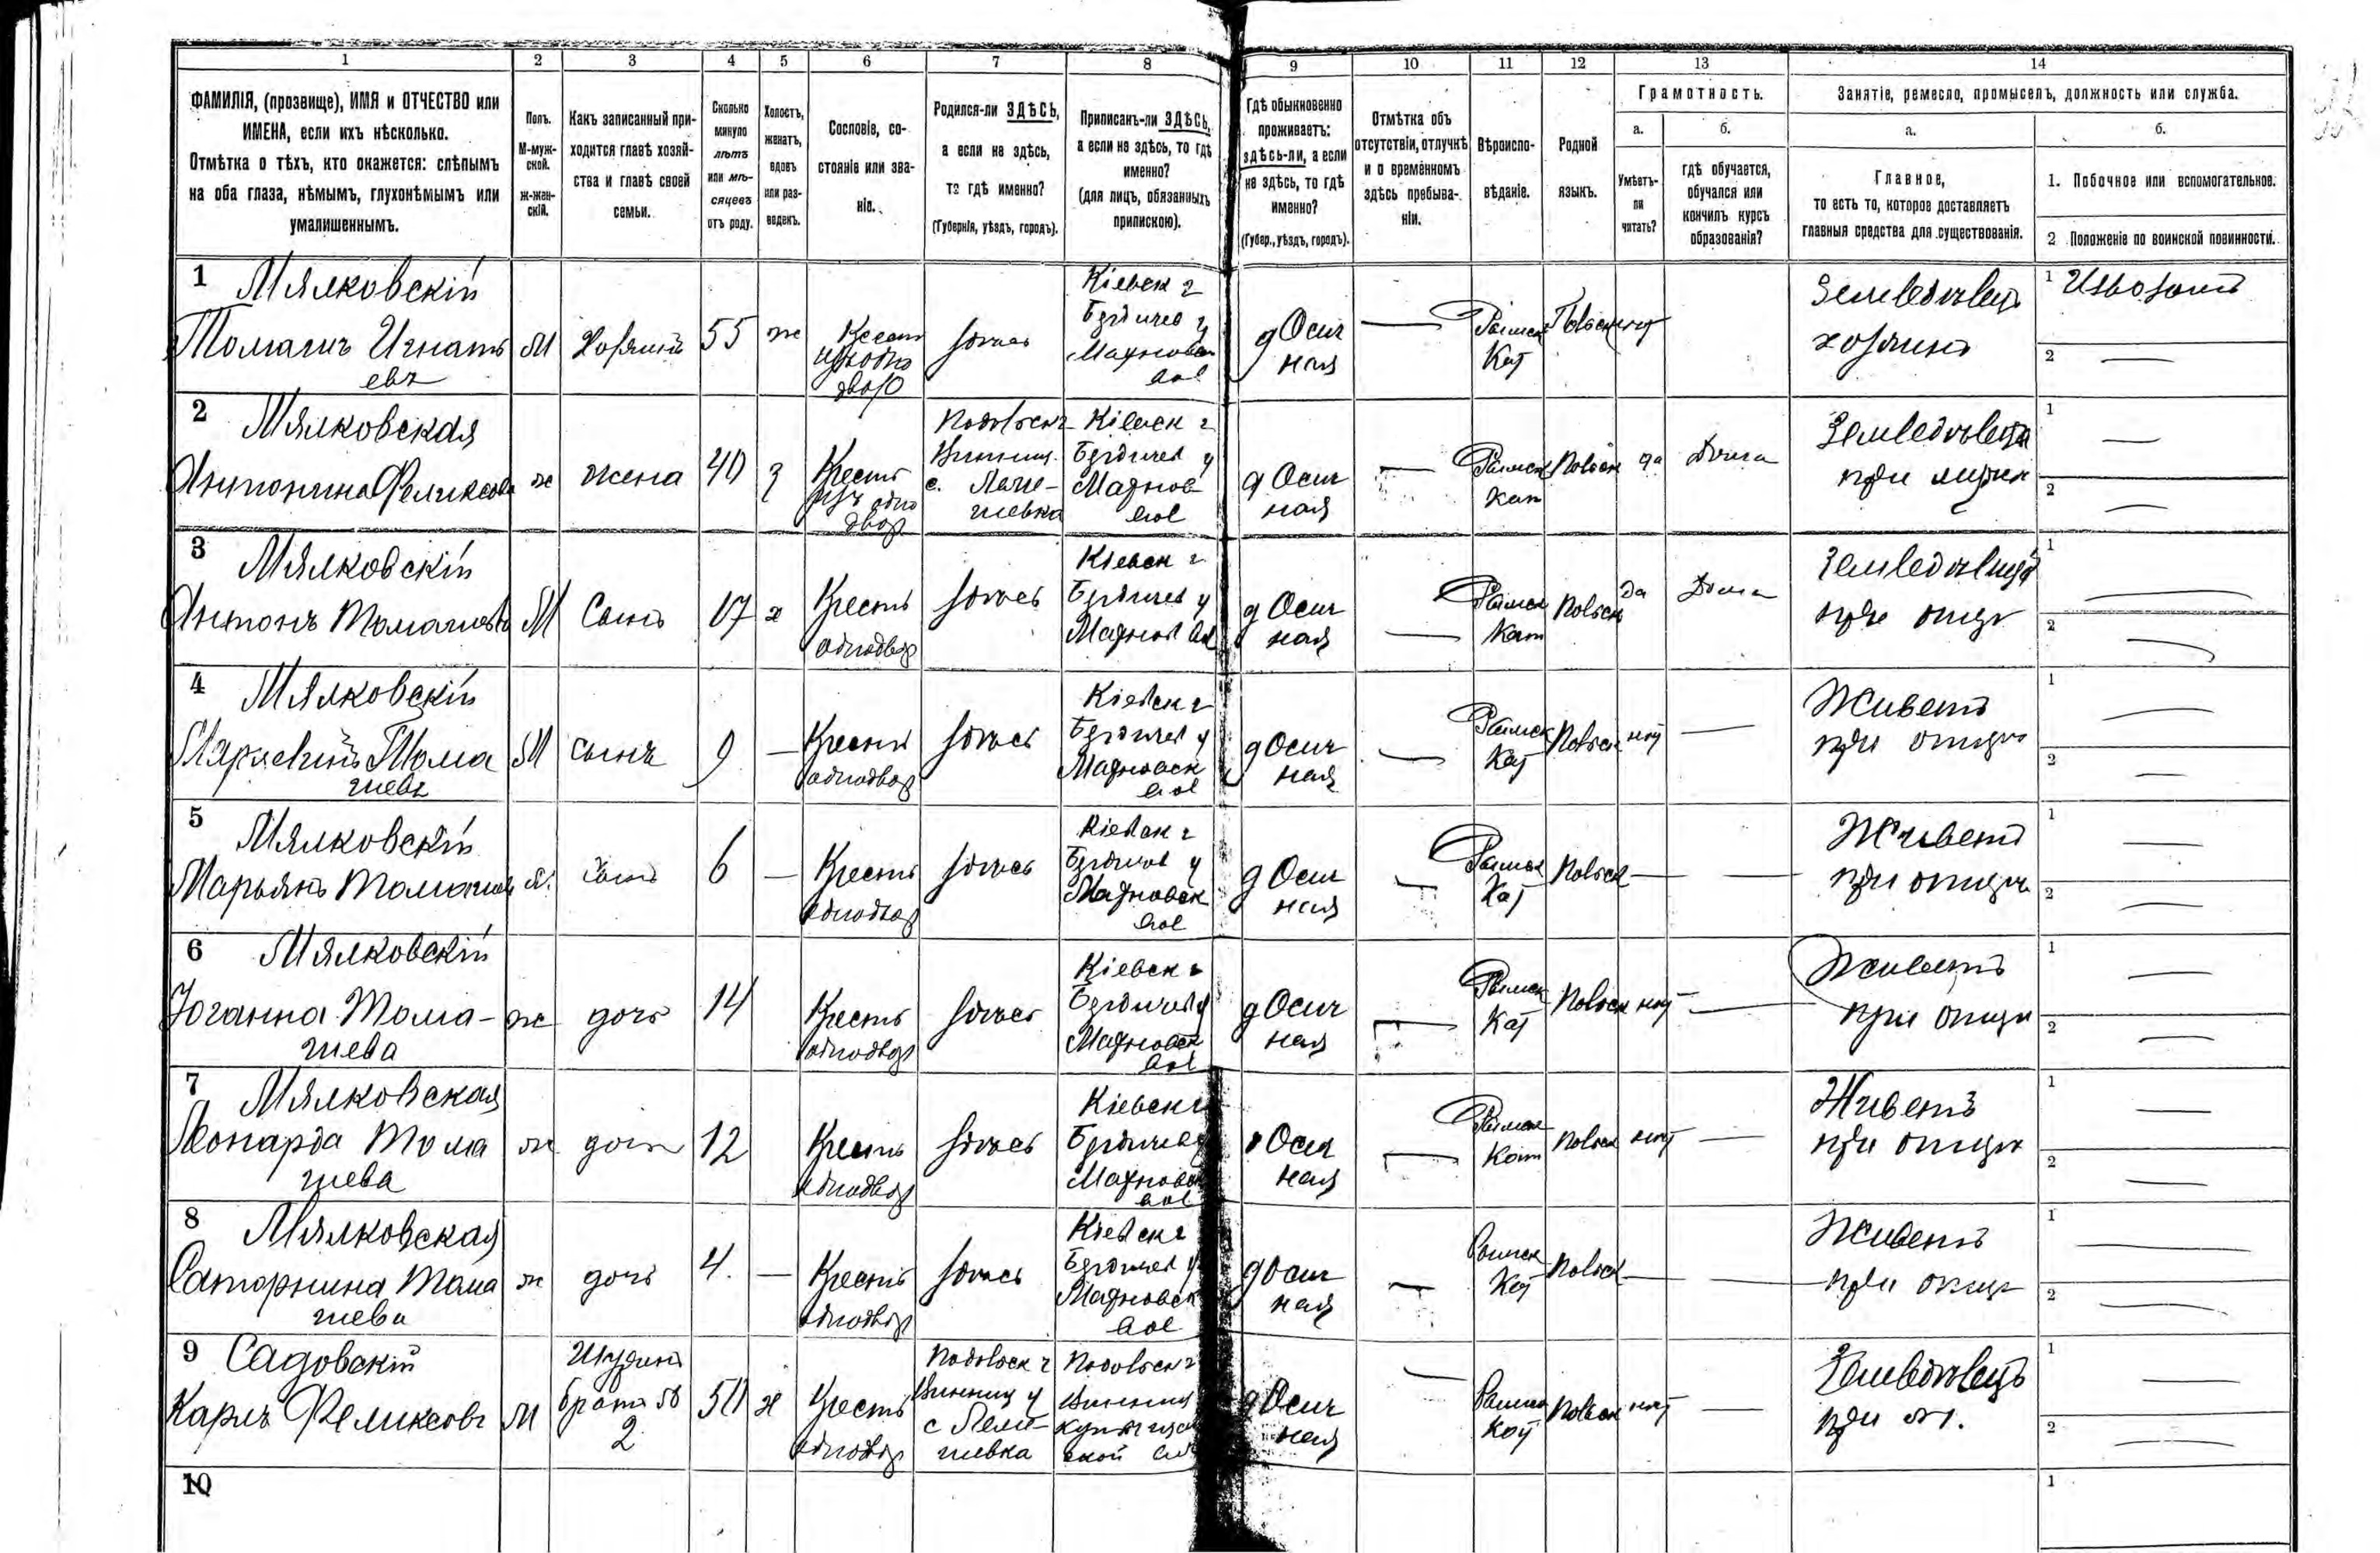 1 2 3 4 5 6 7 8 9 10 11 12 13 14
ФАМИЛІЯ, (прозвище), ИМЯ и ОТЧЕСТВО или
ИМЕНА, если ихъ нѣсколько.
Отмѣтка о тѣхъ, кто окажется: слѣпымъ
на оба глаза, нѣмымъ, глухонѣмымъ или
умалишеннымъ.
Полъ.
М-муж-
ской.
ж-жен-
скій.
Какъ записанный при-
ходится главѣ хозяй-
ства и главѣ своей
семьи.
Сколько
минуло
лѣтъ
или мѣ-
сяцевъ
отъ роду.
Холостъ,
женатъ,
вдовъ
или раз-
веденъ.
Сословіе, со-
стояніе или зва-
ніе.
Родился-ли ЗДѢСЬ,
а если не здѣсь,
то гдѣ именно?
(Губернія, уѣздъ, городъ).
Приписанъ-ли ЗДѢСЬ,
а если не здѣсь, то гдѣ
именно?
(для лицъ, обязанныхъ
припискою).
Гдѣ обыкновенно
проживаетъ:
здѣсь-ли, а если
не здѣсь, то гдѣ
именно?
(Губер., уѣздъ, городъ).
Отмѣтка объ
отсутствіи, отлучкѣ
и о временномъ
здѣсь пребыва-
ніи.
Вѣроиспо-
вѣданіе.
Родной
языкъ.
Грамотность.
а.
Умѣетъ-
ли
читать?
б.
гдѣ обучается,
обучался или
кончилъ курсъ
образованія?
Занятіе, ремесло, промыселъ, должность или служба.
а.
Главное,
то есть то, которое доставляетъ
главныя средства для существованія.
б.
1. Побочное или вспомогательное.
2 Положеніе по воинской повинности.
1 Мялковскій
Томашъ Игнать
евъ
М
Хозяинъ
55
ж
Крест
изъ одно
двор
здѣсь
Кіевск г
Бердичев у
Махновск
вол
д Осич
ная
—
Римск
Кат
Польск
нѣт
Земледѣлец
хозяинъ
1 Извозомъ
2 —
2 Мялковская
Антонина Феликсова
ж
жена
40
з
Крестъ
изъ одно
двор
Подольск г
Винниц.
с. Леме-
шевка
Кіевск г
Бердичев у
Махнов
вол
д Осич
ная
—
Римск
Кат
Польск
да
Дома
Земледѣлица
при мужѣ
1 —
2 —
3 Мялковскій
Антонъ Томашевъ
М
Сынъ
17
х
Крестъ
однодвор
здѣсь
Кіевск г
Бердичев у
Махнов вол
д Осич
ная
—
Римск
Кат
Польск
да
Дома
Земледѣлец
при отцѣ
1 —
2 —
4 Мялковскій
Тома
шевъ
М
сынъ
9
—
Крестъ
однодвор
здѣсь
Кіевск г
Бердичев у
Махновск
вол
д Осич
ная
—
Римск
Кат
Польск
нѣт
—
Живетъ
при отцѣ
1 —
2 —
5 Мялковскій
Марьянъ Томашевъ
М.
сынъ
6
—
Крестъ
однодвор
здѣсь
Кіевск г
Бердичев у
Махновск
вол
д Осич
ная
—
Римск
Кат
Польск
—
—
Живетъ
при отцѣ
1 —
2 —
6 Мялковскій
Іоганна Тома-
шева
ж
дочь
14
Крестъ
однодвор
здѣсь
Кіевск г
Бердичев у
Махновск
вол
д Осич
ная
—
Римск
Кат
Польск
нѣт
—
Живетъ
при отцѣ
1 —
2 —
7 Мялковская
Леонарда Тома
шева
ж
дочь
12
Крестъ
однодвор
здѣсь
Кіевск г
Бердичев у
Махновск
вол
д Осич
ная
—
Римск
Кат
Польск
нѣт
—
Живетъ
при отцѣ
1 —
2 —
8 Мялковская
Саторнина Тома
шева
ж
дочь
4.
—
Крестъ
однодвор
здѣсь
Кіевск г
Бердичев у
Махновск
вол
д Осич
ная
—
Римск
Кат
Польск
—
—
Живетъ
при отцѣ
1 —
2 —
9 Садовскій
Карлъ Феликсовъ
М
Шуринъ
братъ
2
50
х
Крестъ
однодвор
Подольск г
Винниц у
с Леме-
шевка
Подольск г
Винниц
ской
д Осич
ная
—
Римск
Кат
Польск
нѣт
—
Земледѣлецъ
при
1 —
2 —
10
1